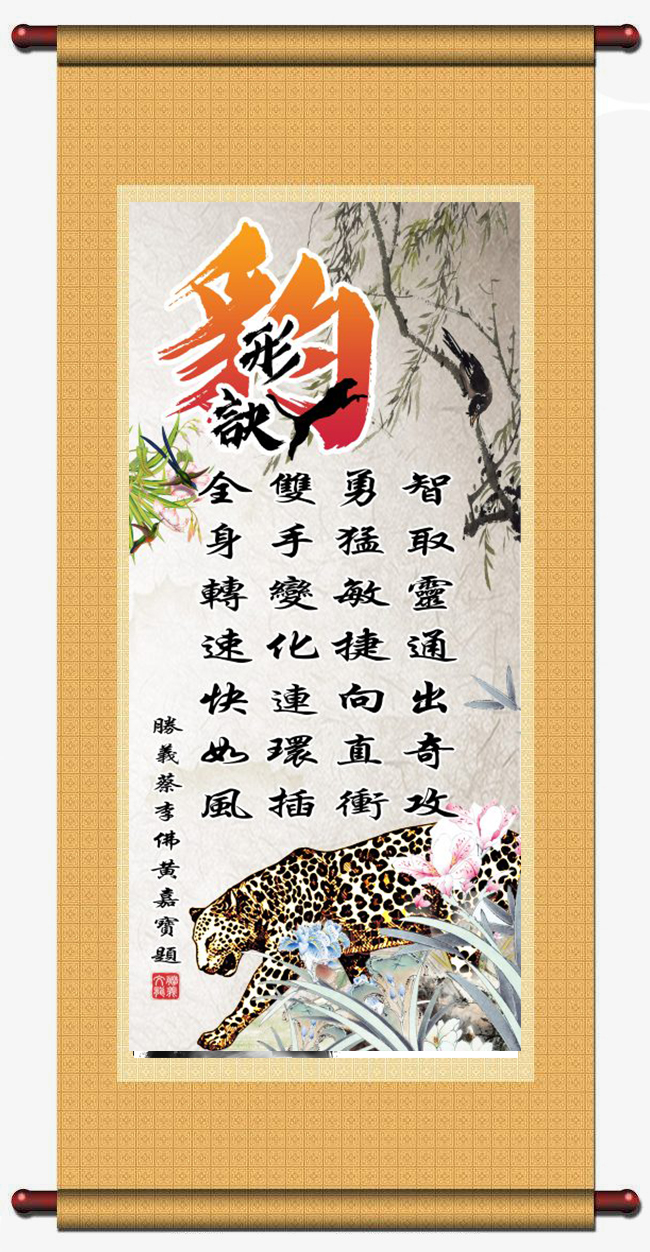 豹形訣
智取靈通出奇攻
勇猛敏捷向直衝
雙手變化連環插
全身轉速快如風
勝義蔡李佛黃嘉寶題